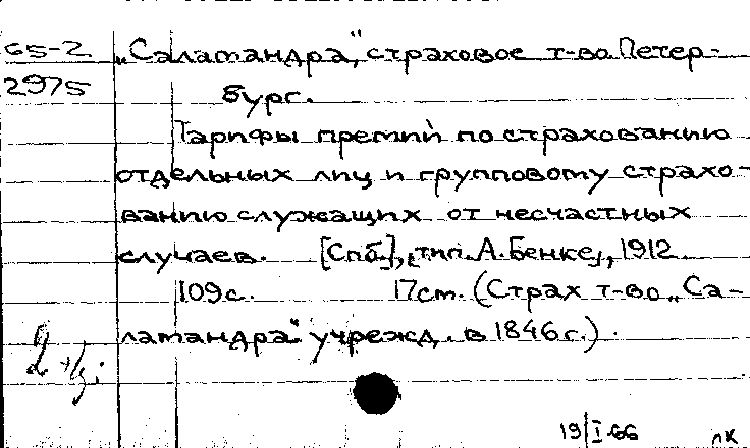 65-2 „Саламандра", страховое т-во. Петер-
2975 бург.
Тарифы премий по страхованию
отдельных лиц и групповому страхо-
ванию служащих от несчастных
случаев. [Спб.], тип. А. Бенке, 1912
109с. 17см. (Страх т-во „Са-
ламандра" учрежд. в 1846 г.).
19/I-66 лк